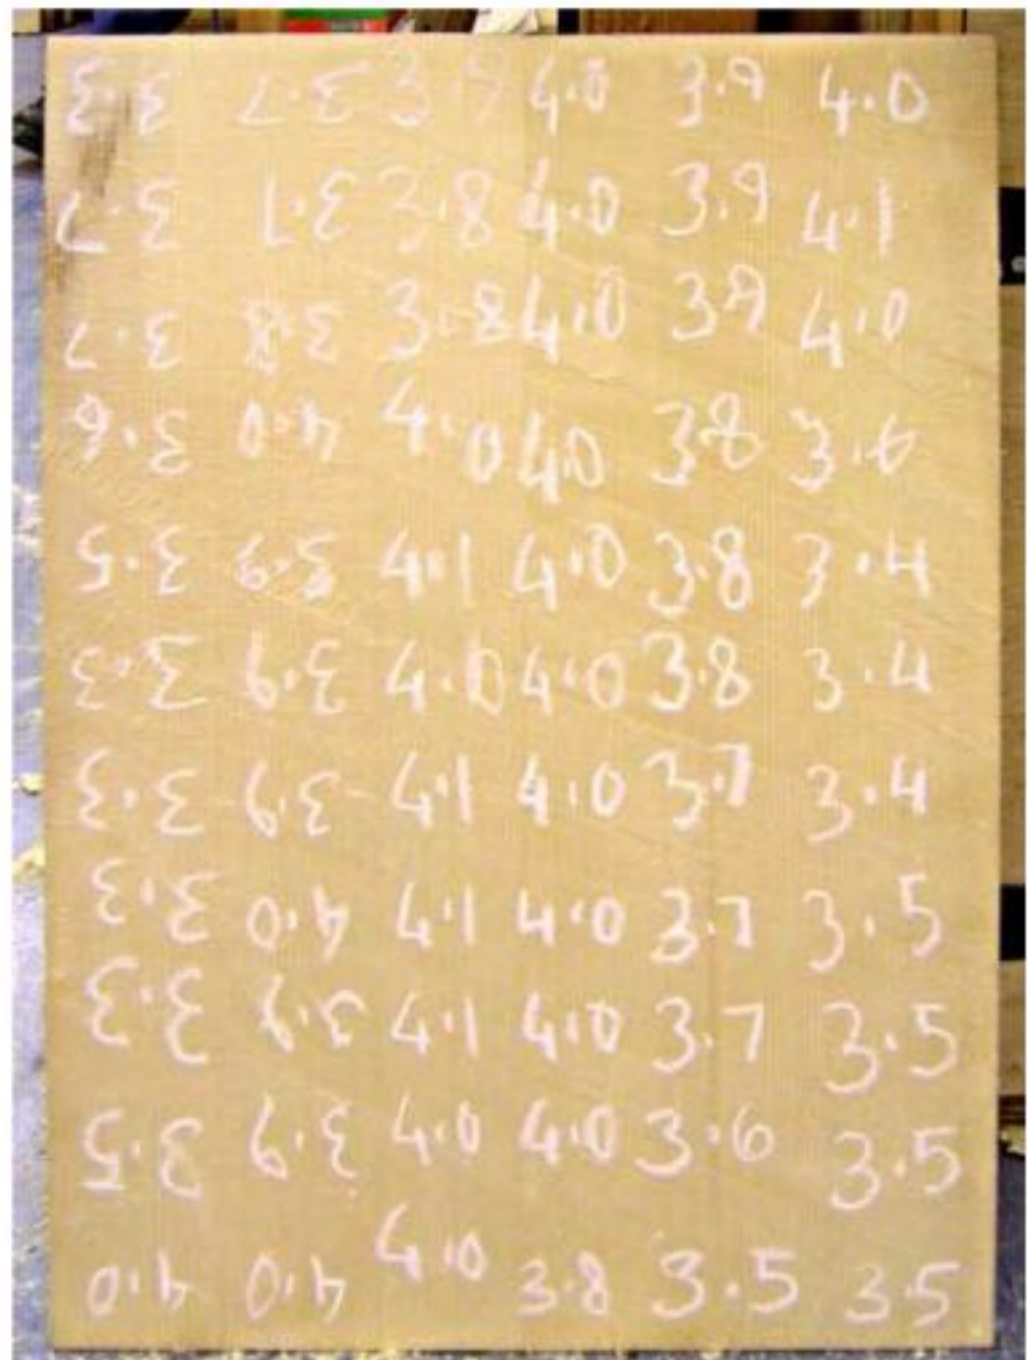 3.3 3.7 4.0 3.9 4.0
3.7 3.7 3.8 4.0 3.9 4.1
3.7 3.8 3.8 4.0 3.9 4.0
3.6 4.0 4.0 4.0 3.8 3.6
3.5 3.9 4.1 4.0 3.8 3.4
3.3 3.9 4.0 4.0 3.8 3.4
3.3 3.9 4.1 4.0 3.7 3.4
3.3 4.0 4.1 4.0 3.7 3.5
3.3 3.9 4.1 4.0 3.7 3.5
3.5 3.9 4.0 4.0 3.6 3.5
4.0 4.0 4.0 3.8 3.5 3.5